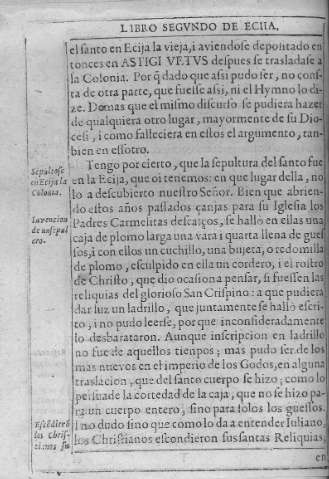 LIBRO SEGVNDO DE ECIJA.
el santo en Ecija la vieja, i aviendose depositado en
tonces en ASTIGI VETVS despues se trasladase a
la Colonia. Por q̃ dado que assi pudo ser, no cons-
ta de otra parte, que fuesse assi, ni el Hymno lo di-
ze. Demas que el mismo discurso se pudiera hazer
de qualquiera otro lugar, mayormente de su Dio-
cesi, i como falleciera en estos el argumento, tan-
bien en essotro.
Tengo por cierto, que la sepultura del santo fue
en la Ecija, que oi tenemos: en que lugar della, no
lo a descubierto nuestro Señor. Bien que abrien-
do estos años passados çanjas para su Iglesia los
Padres Carmelitas descalços, se hallo en ellas una
caja de plomo larga una vara i quarta llena de gues
sos, i con ellos un cuchillo, una bujeta, o redomilla
de plomo, esculpido en ella un cordero, i el rostro
de Christo, que dio ocasion a pensar, si fuessen las
reliquias del glorioso San Crispino: a que pudiera
dar luz un ladrillo, que juntamente se hallo escri-
to, i no pudo leerse, porque inconsideradamente
lo desbarataron. Aunque inscripcion en ladrillo
no fue de aquellos tienpos; mas pudo ser de los
mas nuevos en el imperio de los Godos, en alguna
traslacion, que del santo cuerpo se hizo; como lo
persuade la cortedad de la caja, que no se hizo pa-
ra un cuerpo entero, sino para solos los guessos.
I no dudo sino que como lo da a entender Iuliano,
los Christianos escondieron sus santas Reliquias,
en
Sepultose
en Ecija la
Colonia.
Invencion
de un sepul
cro.
Escõdierõ
los Chris-
tianos su